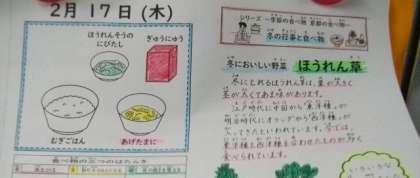 2月17日(木)
ほうれんそうの
にびたし
ぎゅうにゅう
むぎごはん
あげたまに
シリーズ 〜季節の食べ物 京都の食〜
冬の行事と食べ物
冬においしい野菜 ほうれん草
冬にとれるほうれん草は、葉が大きく
茎が太くてあま味があります。
江戸時代に中国から「東洋種」が
明治時代にオランダから「西洋種」が
入ってきたといわれています。今では、
東洋種と西洋種を合わせたものが多く
食べられています。